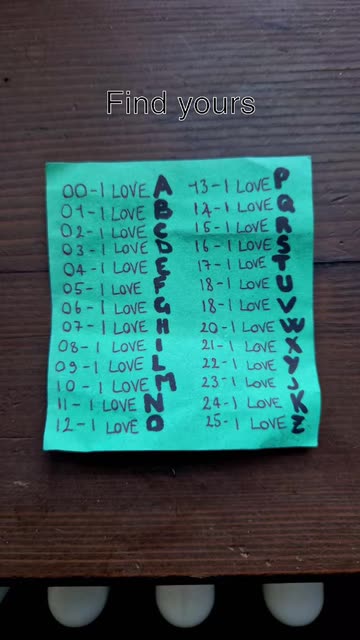 Find yours
00-I LOVE A
01-I LOVE B
02-I LOVE C
03-I LOVE D
04-I LOVE E
05-I LOVE F
06-I LOVE G
07-I LOVE H
08-I LOVE I
09-I LOVE L
10-I LOVE M
11-I LOVE N
12-I LOVE O
13-I LOVE P
14-I LOVE Q
15-I LOVE R
16-I LOVE S
17-I LOVE T
18-I LOVE U
18-I LOVE V
20-I LOVE W
21-I LOVE X
22-I LOVE Y
23-I LOVE J
24-I LOVE K
25-I LOVE Z